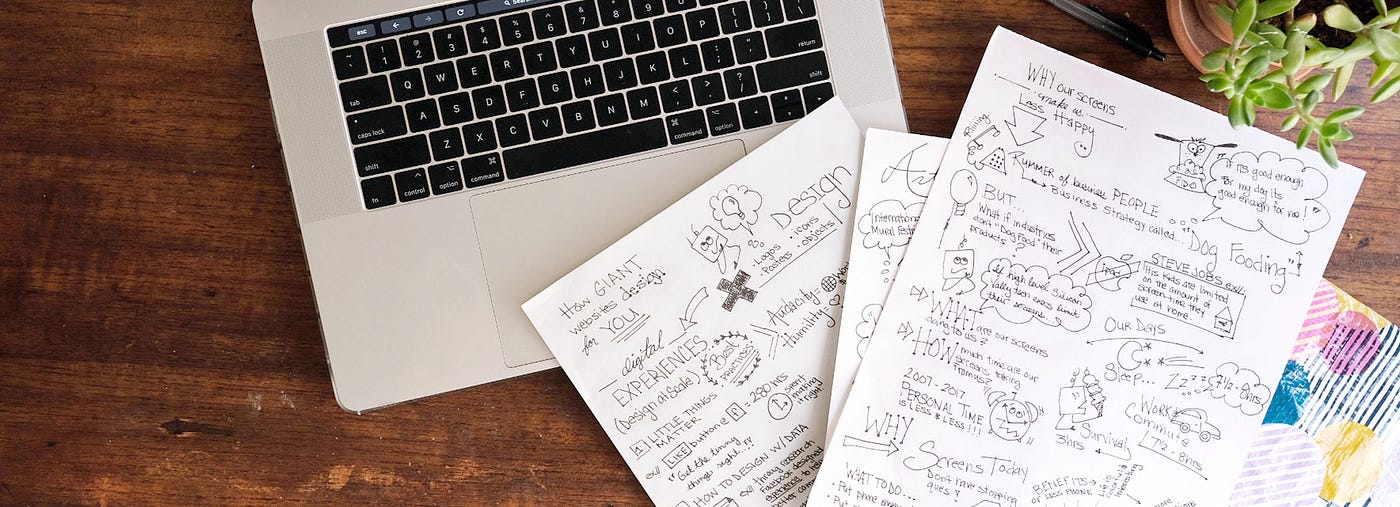 esc
tab
caps lock
shift
fn
control
option
command
command
option
return
shift
! 1 @ 2 # 3 $ 4 % 5 ^ 6 & 7 * 8
Q W E R T Y U I O P
A S D F G H J K L
Z X C V B N M
How GIANT
websites design
for YOU
Design
• Logos • icons
• Posters • objects
Audacity:
Humility
digital
EXPERIENCES
(Design at Scale)
Best
PRACTICES
LITTLE THINGS
MATTER
LIKE button = 280 hrs
spent
making
it right.
"Get the tinny
things right..."
HOW TO DESIGN W/ DATA
research
Facebook designed
Art
International
Mural Festi
WHY our screens
make us
Less Happy
"If its good enough
for my dog its
good enough for me!"
FIDO
RUMMER of business PEOPLE
Business Strategy called...
"Dog Fooding"
BUT...
What if industries
don't "Dog Food" their
products?
iPad
STEVE JOBS
His Kids are limited
on the amount of
screen time they
use at home.
high level Silicon
Valley tech execs limit
their screens.
WHAT are our screens
doing to us?
HOW much time are our
screens taking
from us?
2007-2017
PERSONAL TIME
is Less & Less!!!
OUR DAYS
Sleep... Zzz
7½-8hrs
WORK
Commute
7½-8hrs
Survival
3hrs
WHY
Screens Today
Don't have stopping
ques?
WHAT TO DO...
• Put phone away
BENEFITS
of LESS PHONE
Life is
colorful
interesting